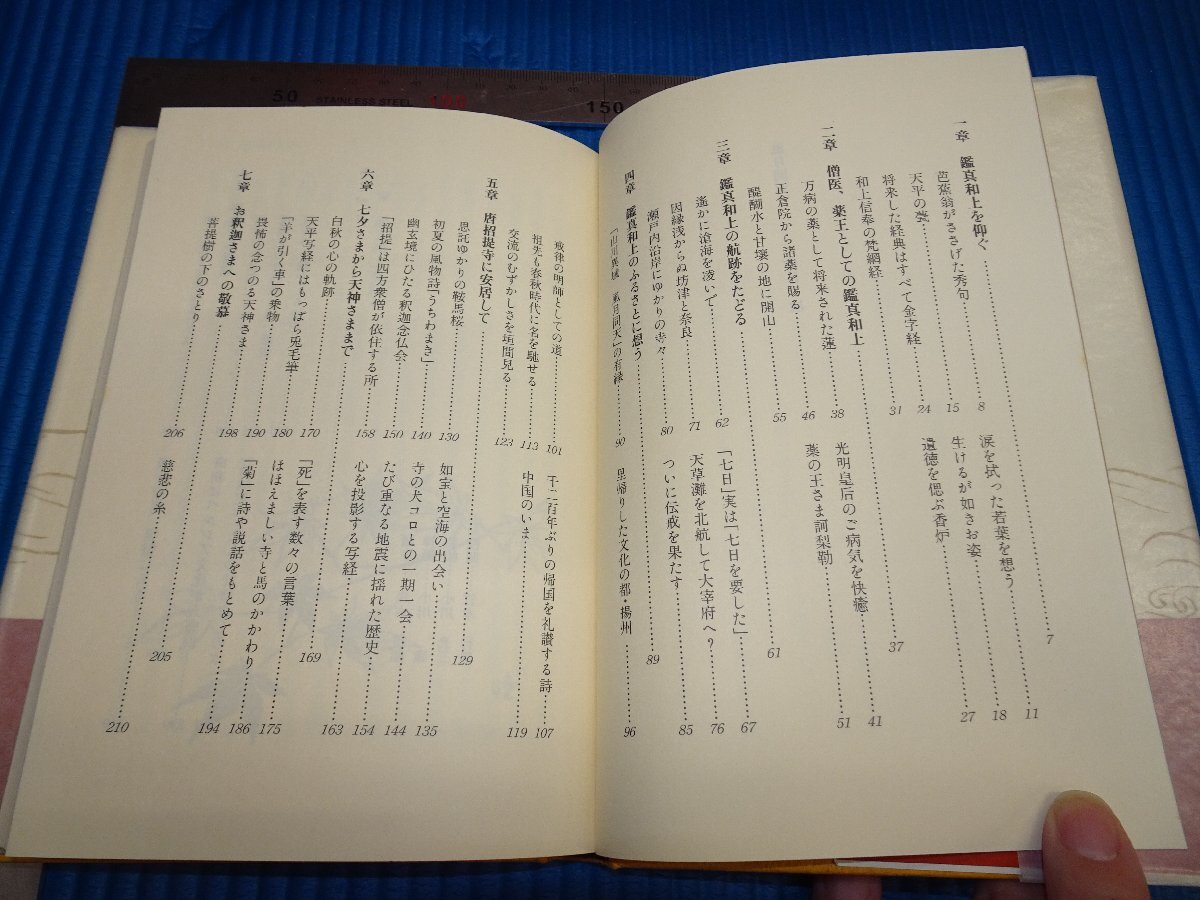 一章 鑑真和上を仰ぐ、……7
芭蕉翁がささげた秀句……8
涙を拭った若葉を想う……11
天平の甍……15
生けるが如きお姿……18
将来した経典はすべて金字経……24
遺徳を偲ぶ香炉……27
和上信奉の梵網経……31
二章 僧医、薬王としての鑑真和上……37
万病の薬として将来された蓮……38
光明皇后のご病気を快癒……41
正倉院から諸薬を賜る……46
薬の王さま訶梨勒……51
醍醐水と甘壌の地に開山……55
三章 鑑真和上の航跡をたどる……61
遙かに滄海を凌いで……62
「七日」実は「七日を要した」……67
因縁浅からぬ坊津と奈良……71
天草灘を北航して大宰府へ?……76
瀬戸内沿岸にゆかりの寺々……80
ついに伝戒を果たす……85
四章 鑑真和上のふるさとに想う……89
「山川異域 風月同天」の有縁……90
里帰りした文化の都・揚州……96
戒律の明師としての道……101
千二百年ぶりの帰国を礼讃する詩……107
祖先も春秋時代に名を馳せる……113
中国のいま……119
交流のむずかしさを垣間見る……123
五章 唐招提寺に安居して……129
思託ゆかりの鞍馬桜……130
如宝と空海の出会い……135
初夏の風物詩「うちわまき」……140
寺の犬コロとの一期一会……144
幽玄境にひたる釈迦念仏会……150
たび重なる地震に揺れた歴史……154
「招提」は四方衆僧が依住する所……158
心を投影する写経……163
六章 七夕さまから天神さままで……169
白秋の心の軌跡……170
「死」を表す数々の言葉……175
天平写経にはもっぱら兎毛筆……180
ほほえましい寺と馬のかかわり……186
「羊が引く車」の乗物……190
「菊」に詩や説話をもとめて……194
畏怖の念つのる天神さま……198
七章 お釈迦さまへの敬慕……205
菩提樹の下のさとり……206
慈悲の糸……210
50
STAINLESS STEEL
100
150